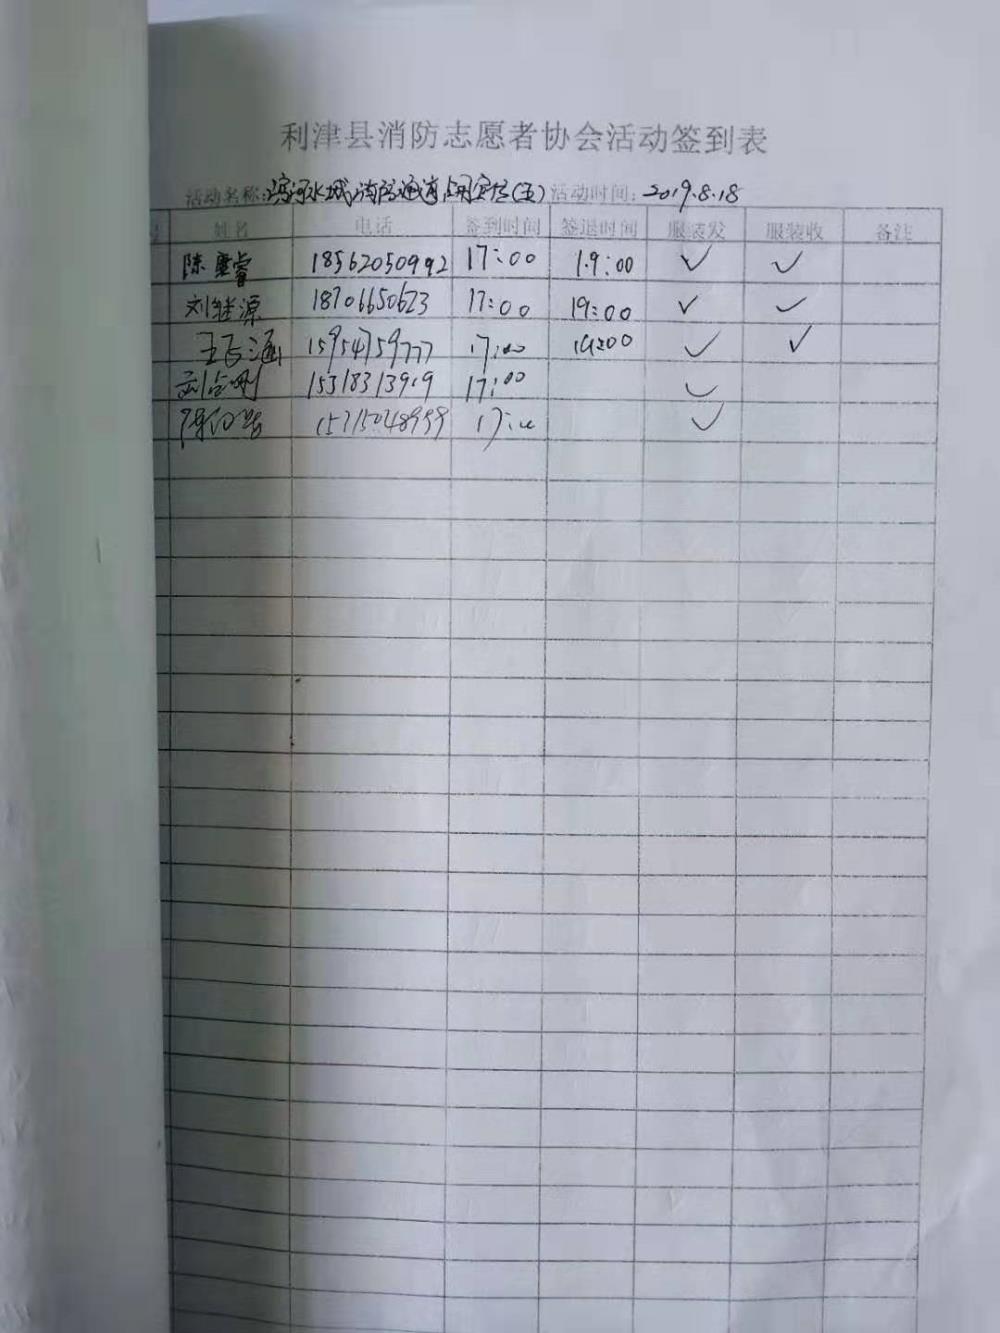 利津县消防志愿者协会活动签到表
活动名称:滨河水城消防通道占用宣传(五) 活动时间: 2019.8.18
号 姓名 电话 签到时间 签退时间 服装发 服装收 备注
陈睿 18562050992 17:00 19:00 ✓ ✓
刘继源 18706650623 17:00 19:00 ✓ ✓
王涵 15954759777 17:00 19:00 ✓ ✓
刘刚 15318313919 17:00 ✓
陈 17: ✓